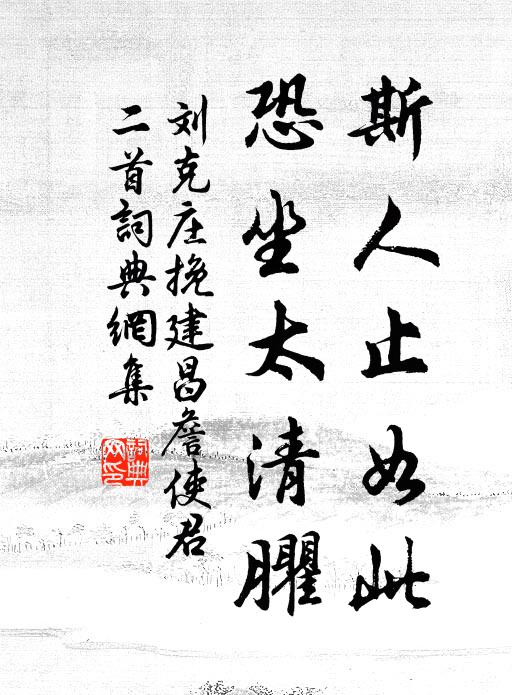 斯人止如此
恐坐太清臞
刘克庄挽建昌詹使君
二首詞典網集
詞典
网印